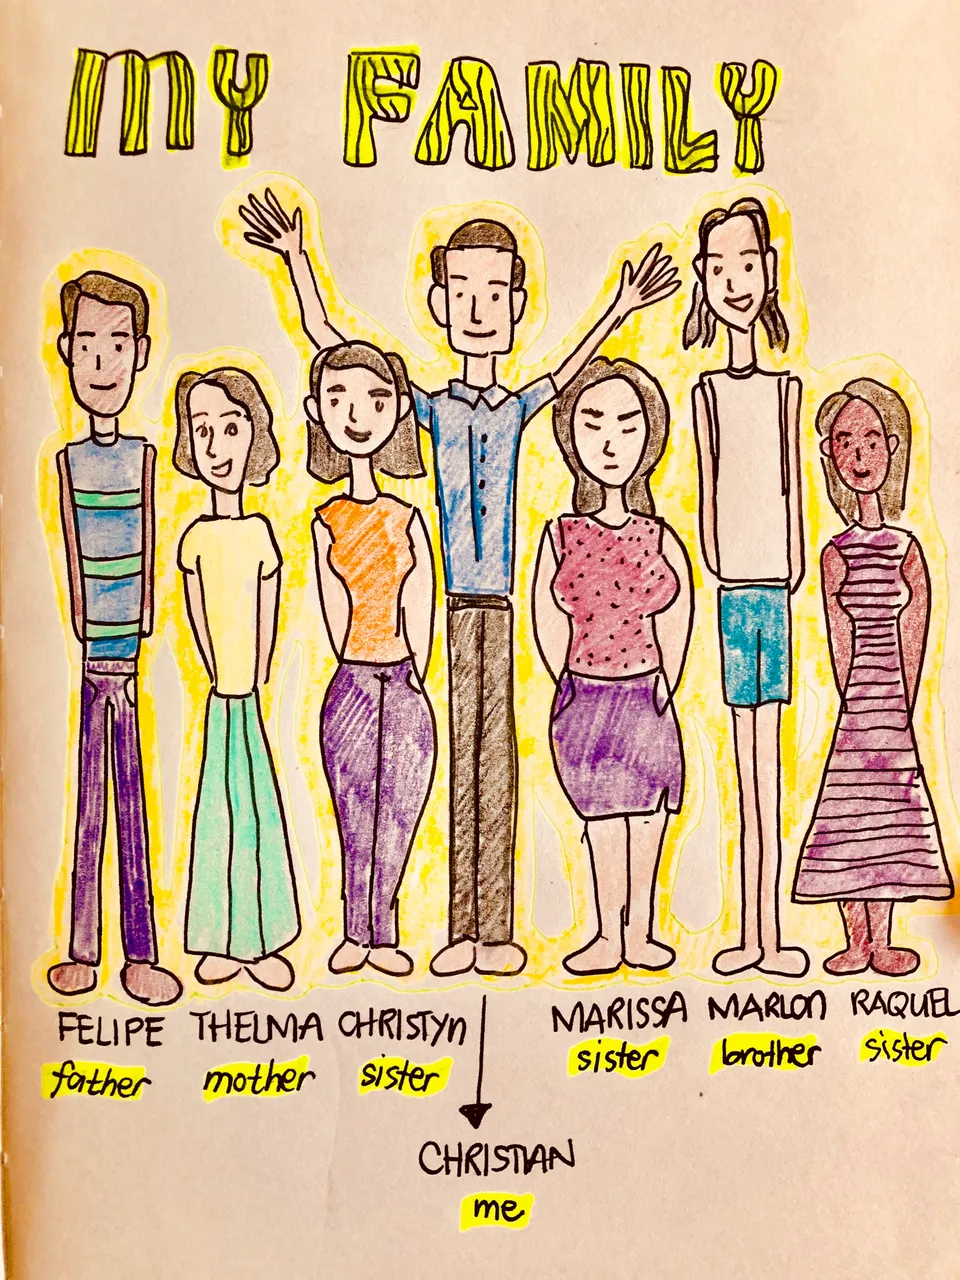 MY FAMILY
FELIPE THELMA CHRISTYN MARISSA MARLON RAQUEL
father mother sister sister brother sister
CHRISTIAN
me